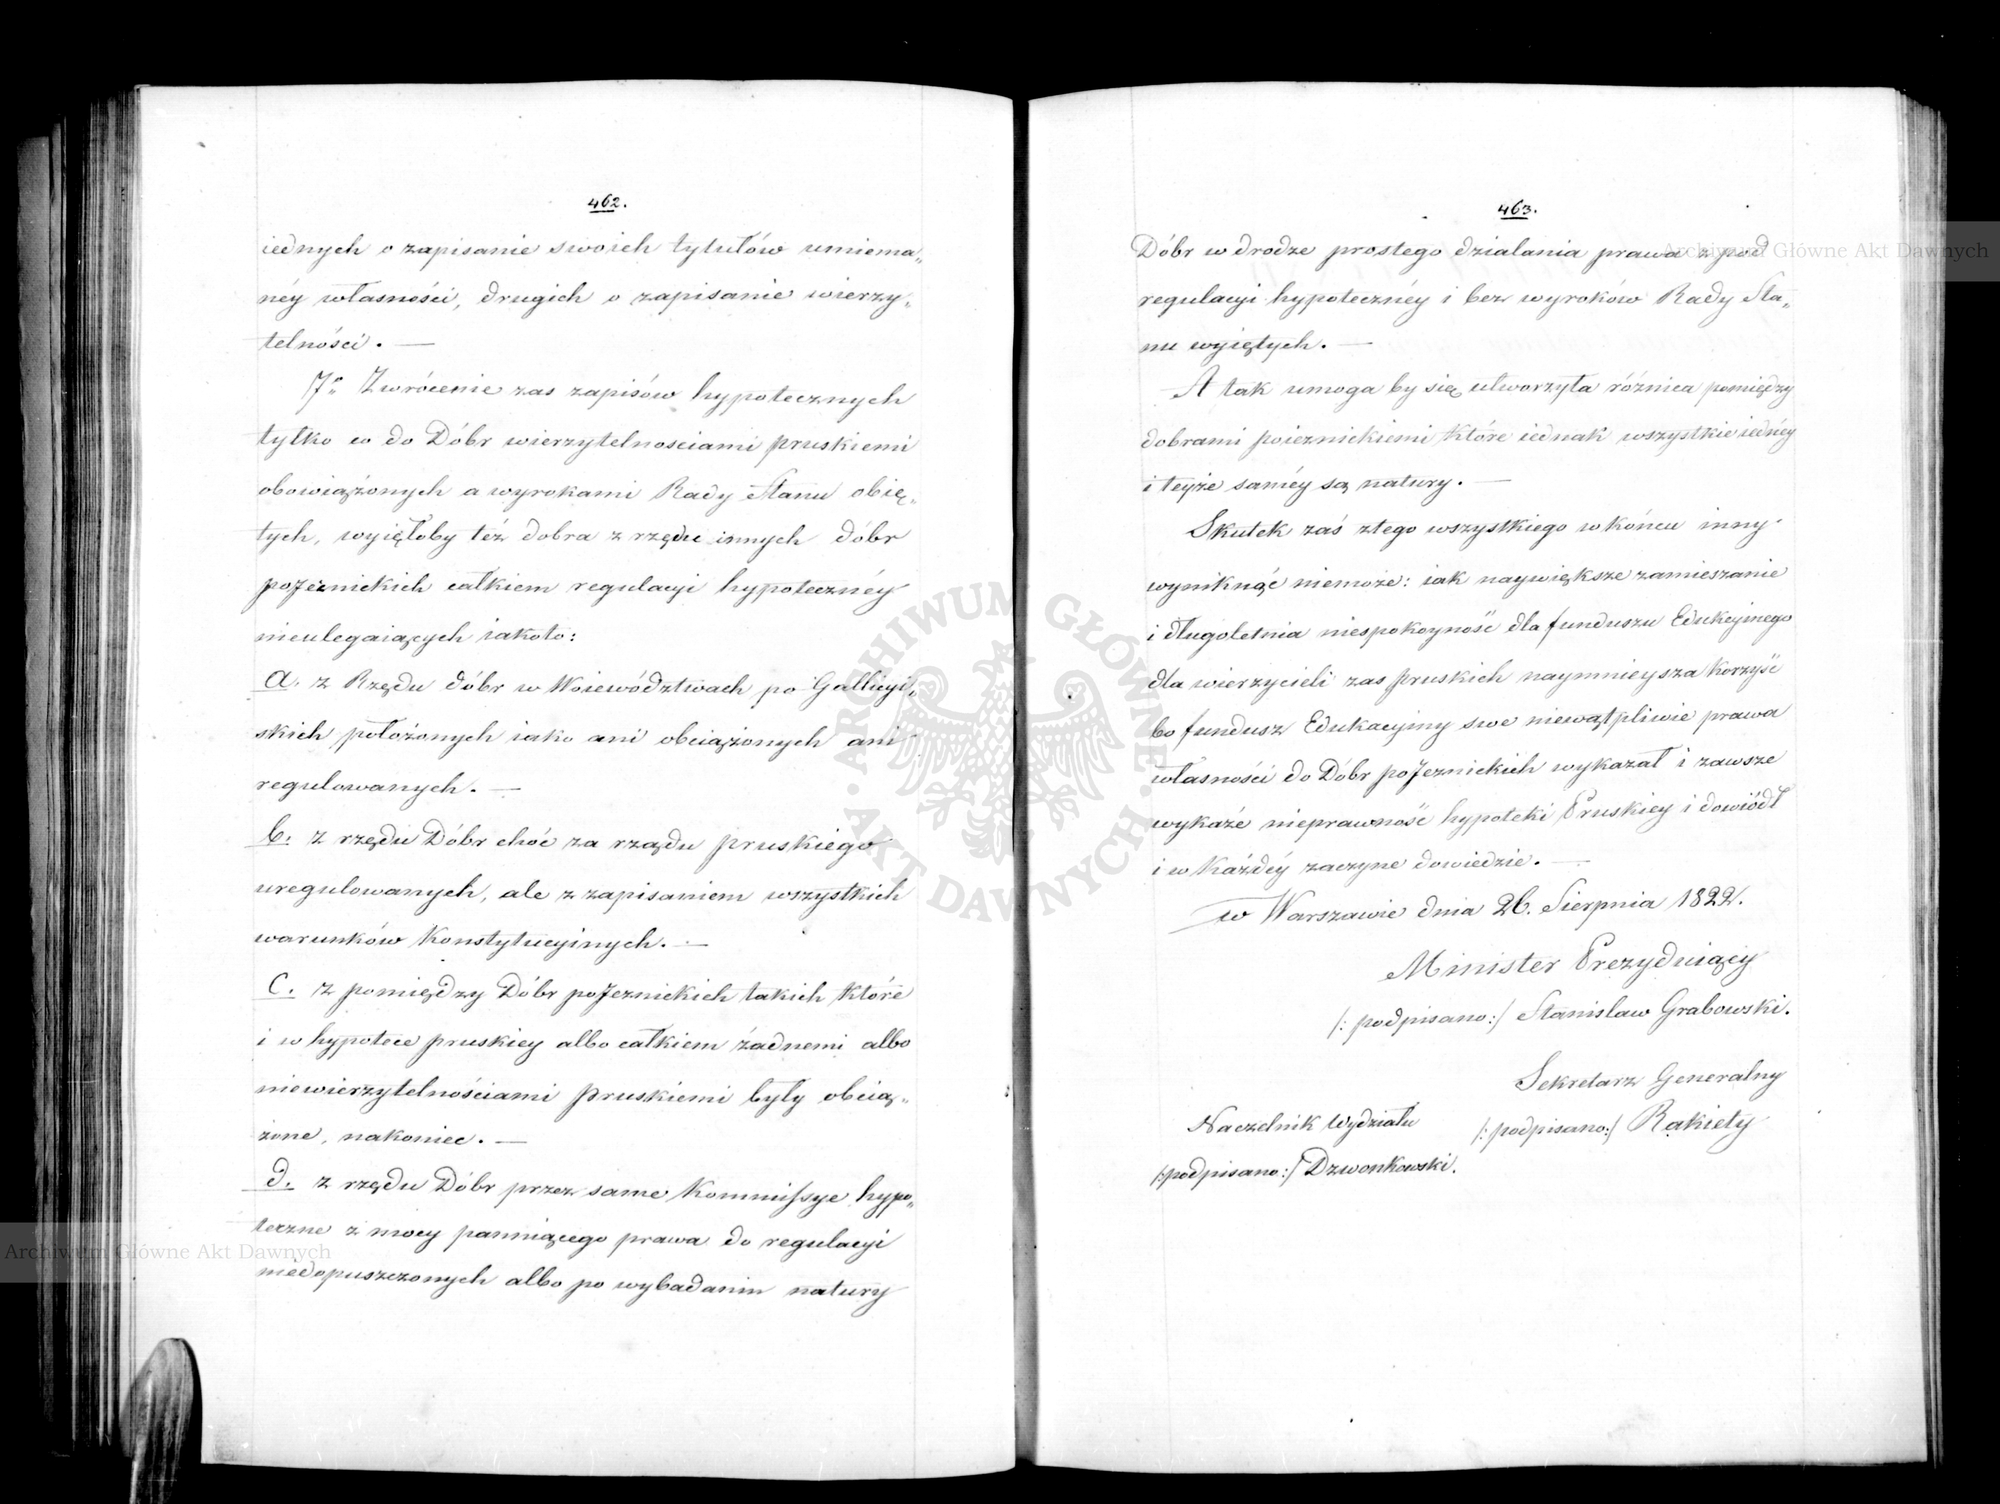 462.
iednych o zapisanie swoich tytułów umiema„
néy własności, drugich o zapisanie wierzy„
telności. —
7o Zwrócenie zas zapisów hypotecznych
tylko co do Dóbr wierzytelnosciami pruskiemi
obowiążonych a wyrokami Rady Stanu obię„
tych, wyięłoby téż dobra z rzędu innych dóbr
poJeznickich całkiem regulacyi hypotecznéy
nieulegaiących iakoto:
a. z Rzędu dóbr w Woiewództwach po Gallicyi„
skich położonych iako ani obciążonych ani
regulowanych. —
b. z rzędu Dóbr choć za rządu pruskiego
uregulowanych, ale z zapisaniem wszystkich
warunków Konstytucyinych. —
C. z pomiędzy Dóbr poJeznickich takich które
i w hypotece pruskiey albo całkiem żadnemi albo
niewierzytelnościami pruskiemi były obcią„
żone, nakoniec. —
d. z rzędu Dóbr przez same Kommissye hypo„
teczne z mocy panuiącego prawa do regulacyi
niedopuszczonych albo po wybadaniu natury
463.
Dóbr w drodze prostego działania prawa z pod
regulacyi hypotecznéy i bez wyroków Rady Sta„
nu wyiętych. —
A tak umoga by się utworzyła różnica pomiędzy
dobrami poieznickiemi które iednak wszystkie iednéy
i teyże saméy są natury. —
Skutek zaś ztego wszystkiego w końcu inny
wyniknąć niemoże: iak naywiększe zamieszanie
i długoletnia niespokoyność dla funduszu Edukcyinego
dla wierzycieli zas pruskich naymnieysza korzyść
bo fundusz Edukacyiny swe niewątpliwie prawa
własności do Dóbr poJeznickich wykazał i zawsze
wykaże nieprawność hypoteki Pruskiey i dowiódł
i w każdéy zaczyne dowiedzie. —
w Warszawie dnia 26. Sierpnia 1822.
Minister Prezyduiący
/: podpisano:/ Stanisław Grabowski.
Sekretarz Generalny
Naczelnik Wydziału /: podpisano:/ Rakiety
/:podpisano:/ Dzwonkowski.
Archiwum Główne Akt Dawnych
Archiwum Główne Akt Dawnych
ARCHIWUM GŁÓWNE AKT DAWNYCH